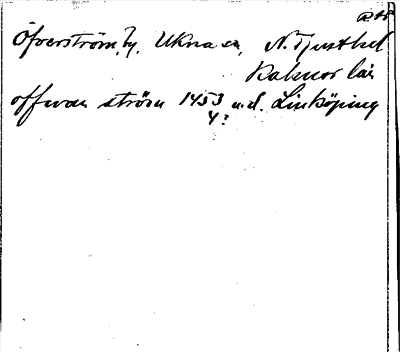 Öfverström, by. Ukna sn, N. Tjusthd
Kalmar län
offwan ström 1453 u.d. Linköping
4?